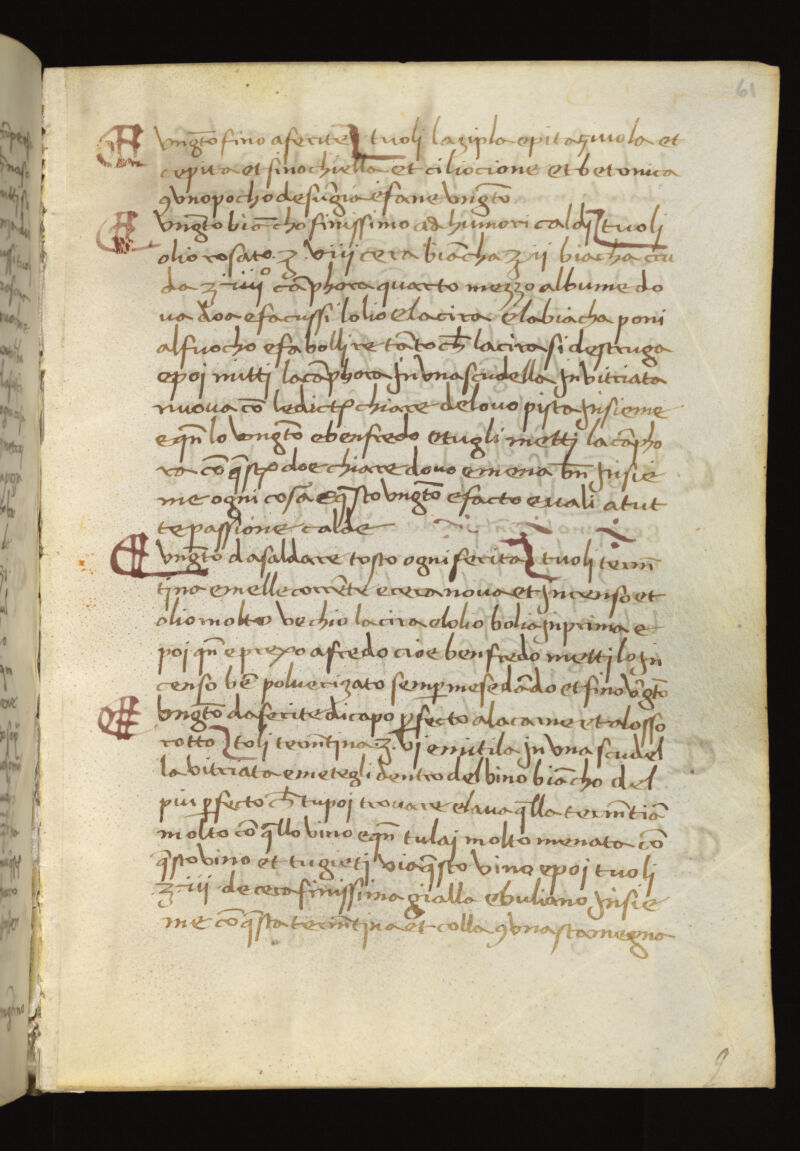 61
Vngto fino a ferite tuoli la gipla e pitagiuola et
cepita et finochiella et ciliocione et betonica
9 vno pocho de sugia e fane vngto
Vngto biācho finissimo ad humori caldi tuoli
olio rosato ʒ viij cera biācha ʒ ij biacha cru
da ʒ iiijº cāphora quarto mezzo albume do
va doa e fa cussi lolio e la cira e la biacha poni
al fuocho e fa bollire tāto ch la cira si destruga
e poi mitti la cāphora in vna scudella invitriata
nuova cō le dicte chiare de lovo pista insieme
e qn lo vngto e ben fredo e tu gli metti la cāpho
ra cō qste doe chiare dovo e mena bn insie
me ogni cosa e qsto vngto e facto e vali a tut
te passione calde
Vngto da saldare tosto ogni ferita tuoli termē
tina e melle corrēte e cera nova et incenso et
olio molto vechio la cira e lolio bolia inprima e
poi qn e prexo a fredo cioe ben fredo metti lo in
censo bē poluerizato semp mesedādo et fino vngto
Vngto da ferite di capo pfecto a la carne et a losso
rotto toli termētina ʒ vj e mitila in vna scudel
la vitriata e metegli dentro del vino biācho del
piu pfecto ch tu poi trovare e lava qlla termētia
molto cō qllo vino e qn tu lai molto menata cō
qsto vino et tu gieti via qsto vino e poi tuoli
ʒ iij de cera finissima gialla e buliano insie
me cō qsta termētina et colla 9 vna stamegna